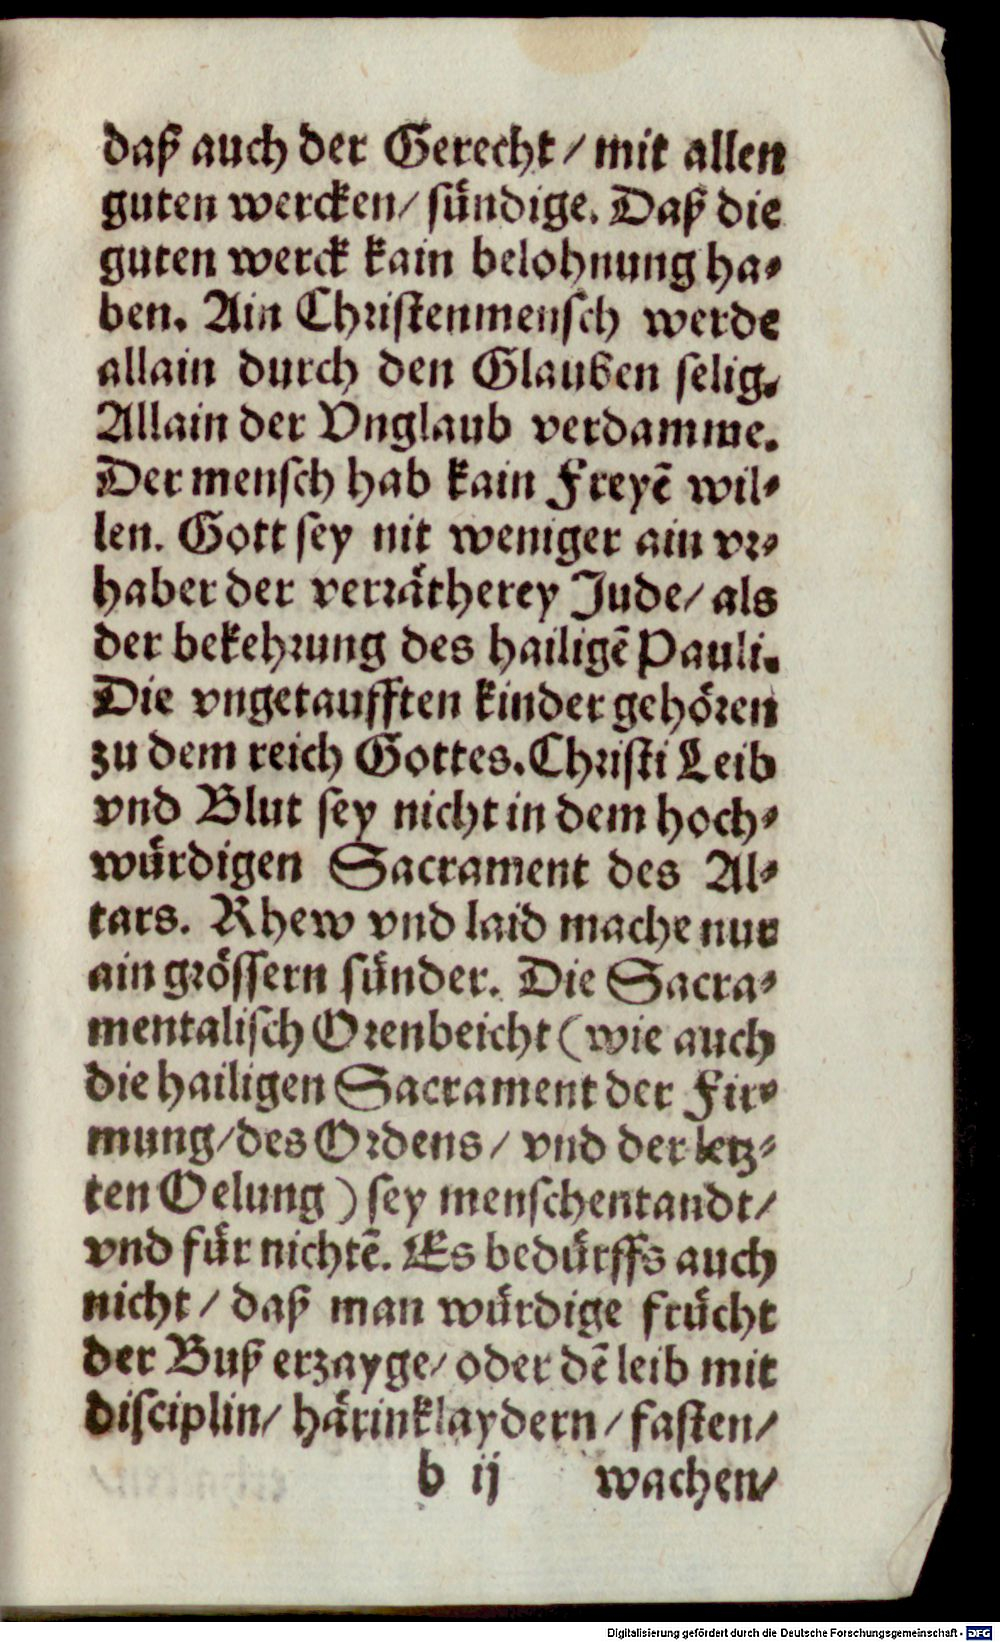 daß auch der Gerecht / mit allen
guten wercken / sündige. Daß die
guten werck kain belohnung ha⸗
ben. Ain Christenmensch werde
allain durch den Glauben selig.
Allain der Vnglaub verdamme.
Der mensch hab kain Freyẽ wil⸗
len. Gott sey nit weniger ain vr⸗
haber der verrätherey Jude / als
der bekehrung des hailigẽ Pauli.
Die vngetaufften kinder gehören
zu dem reich Gottes. Christi Leib
vnd Blut sey nicht in dem hoch⸗
würdigen Sacrament des Al⸗
tars. Rhew vnd laid mache nur
ain grössern sünder. Die Sacra⸗
mentalisch Orenbeicht (wie auch
die hailigen Sacrament der Fir⸗
mung / des Ordens / vnd der letz⸗
ten Oelung) sey menschentandt /
vnd für nichtẽ. Es bedürffs auch
nicht / daß man würdige frücht
der Buß erzayge / oder dẽ leib mit
disciplin / härinklaydern / fasten /
b ij wachen /
Digitalisierung gefördert durch die Deutsche Forschungsgemeinschaft - DFG